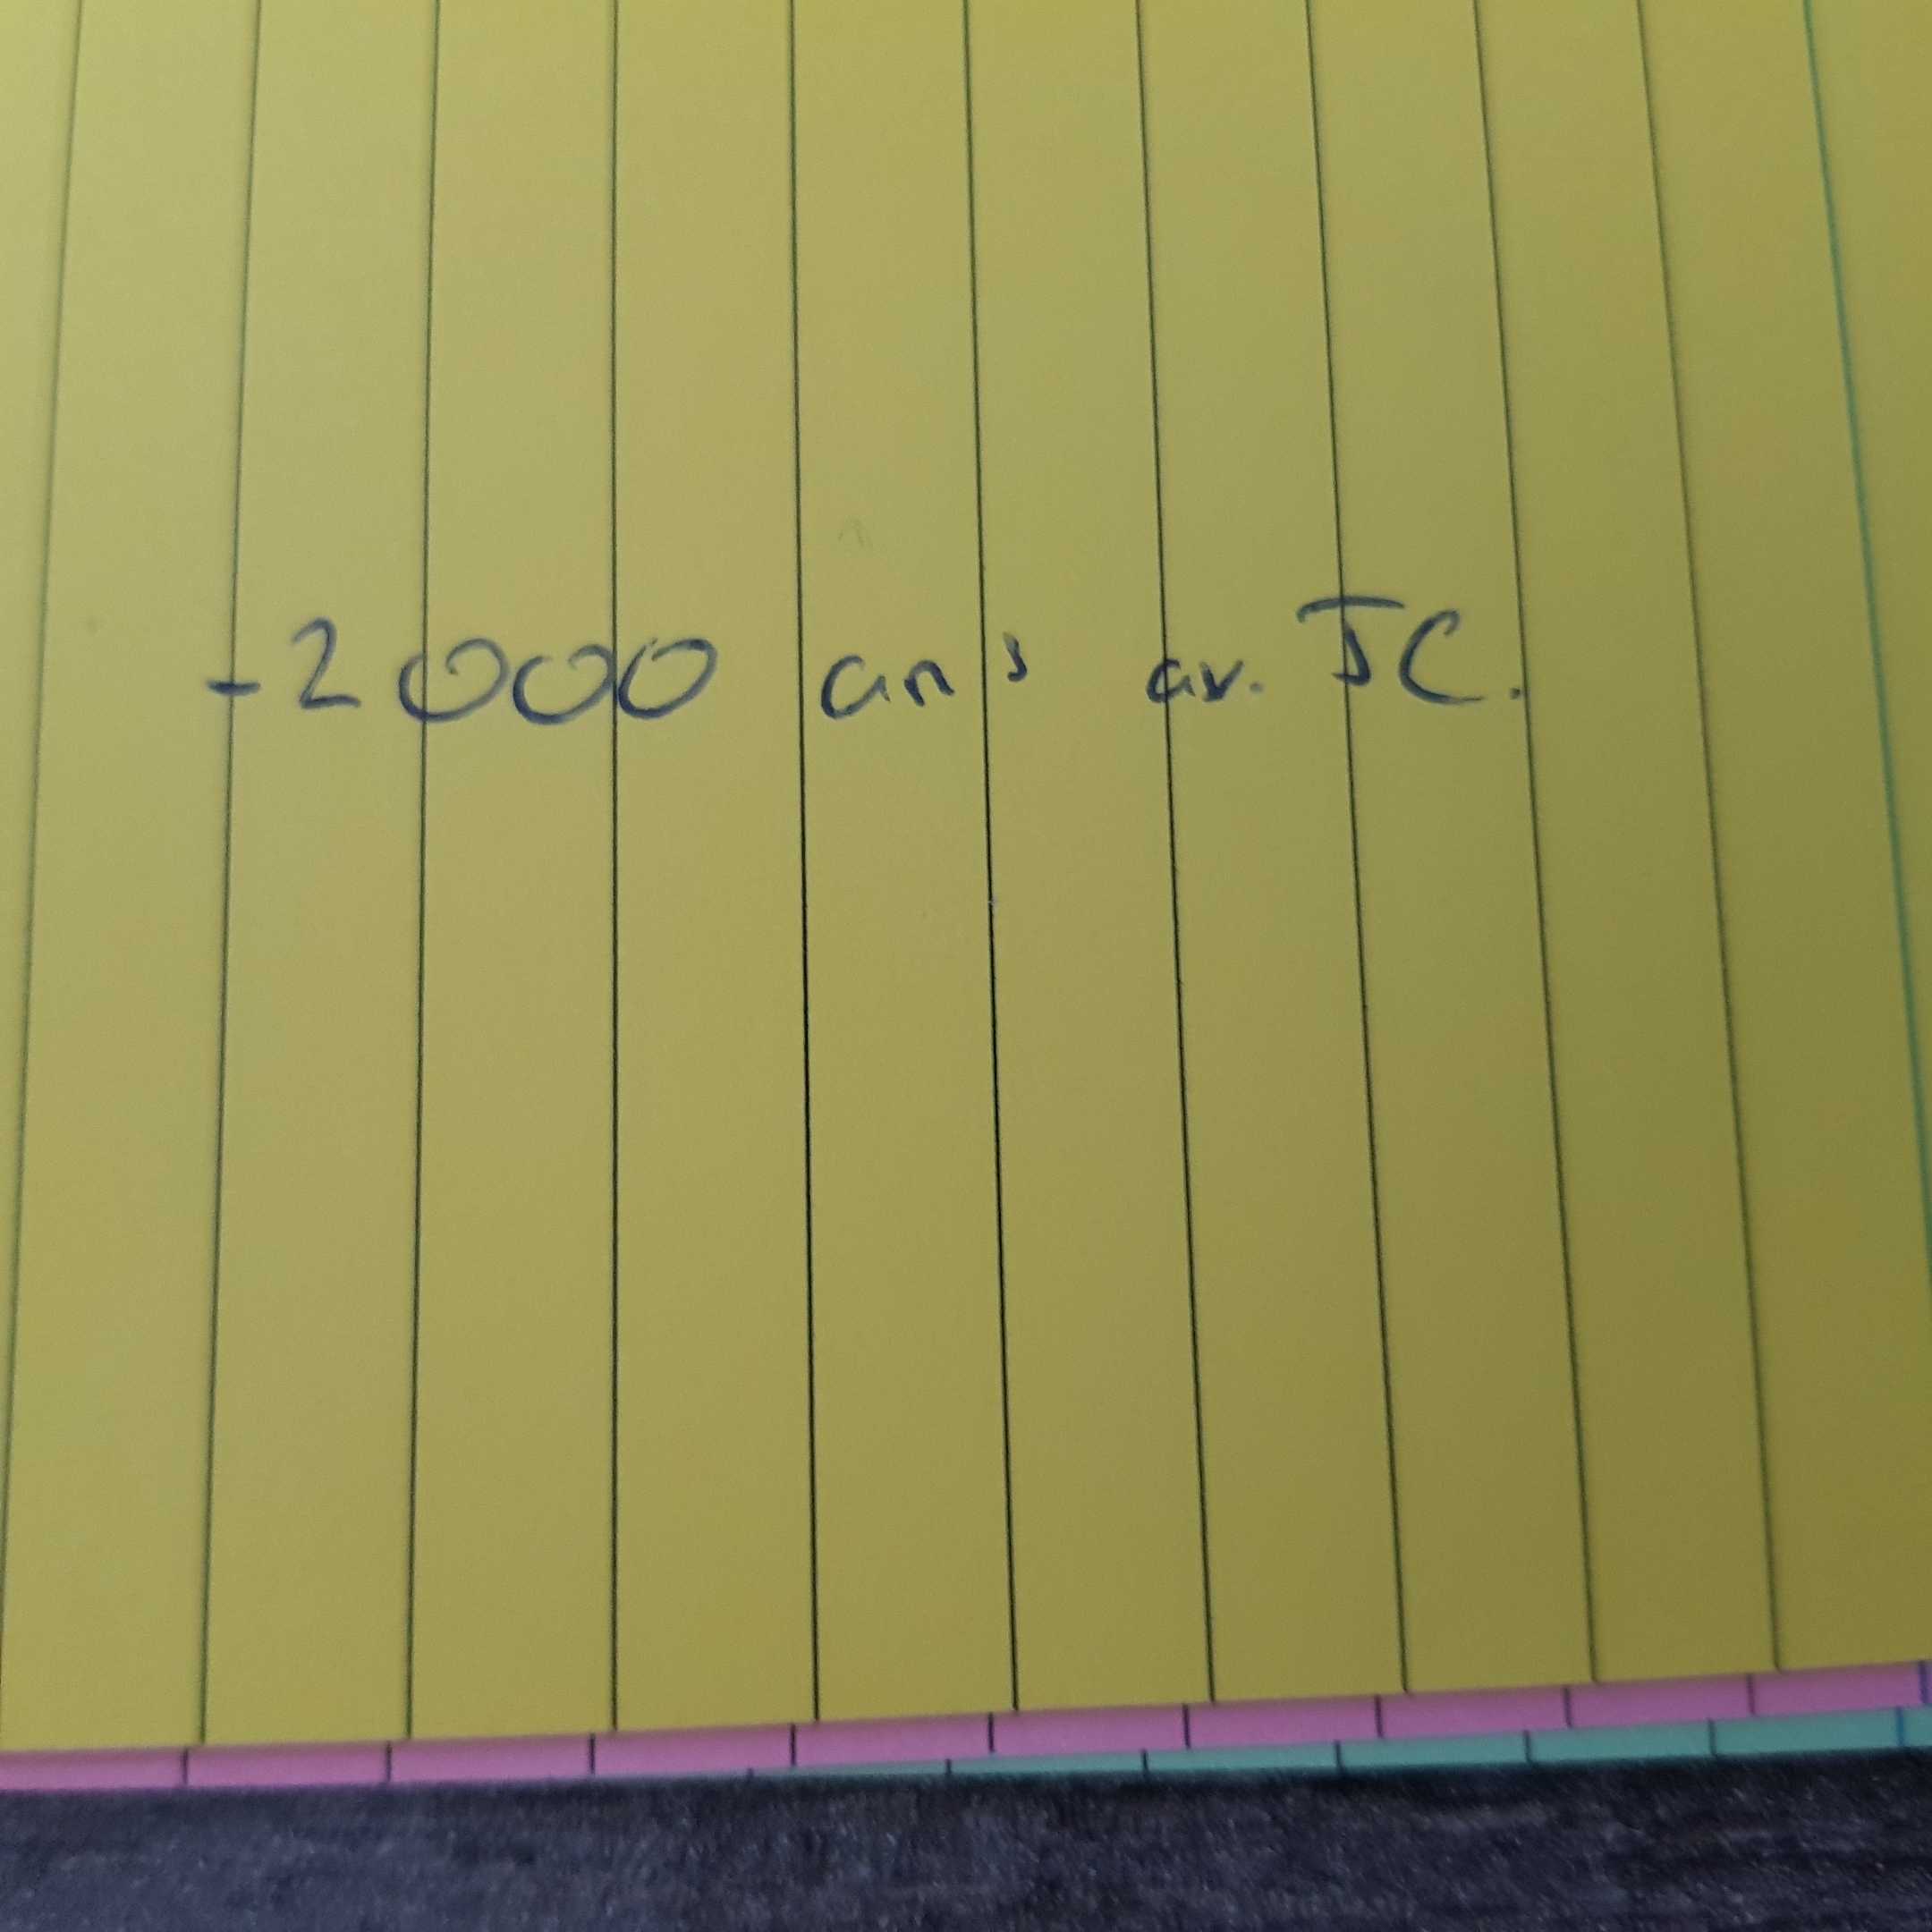 -2000 ans av. JC.